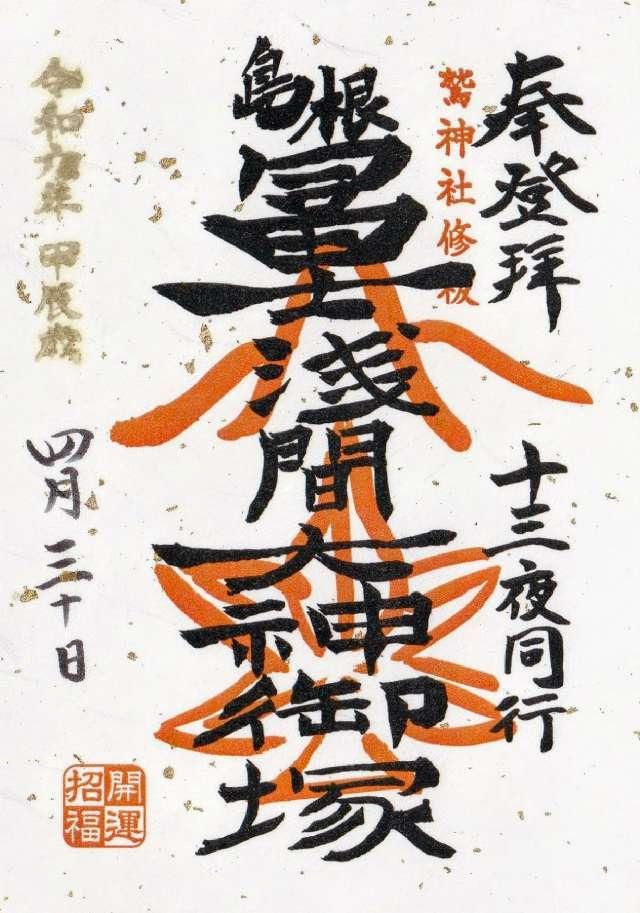 奉登拜
十三夜同行
鷲神社修祓
島根
冨士浅間大神御塚
令和六年 甲辰歳
四月三十日
開運
招福